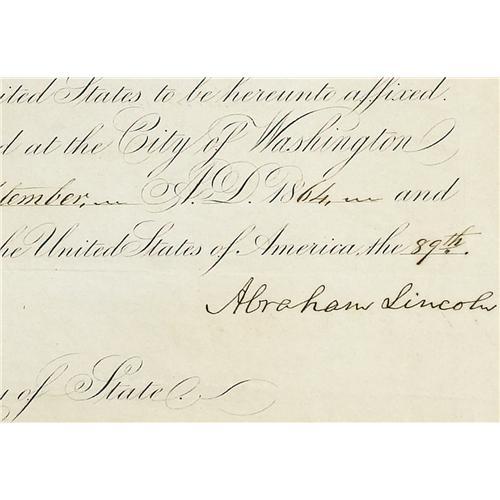 ited States to be hereunto affixed.
d at the City of Washington
tember, A.D. 1864, and
he United States of America, the 89th.
Abraham Lincoln
y of State.